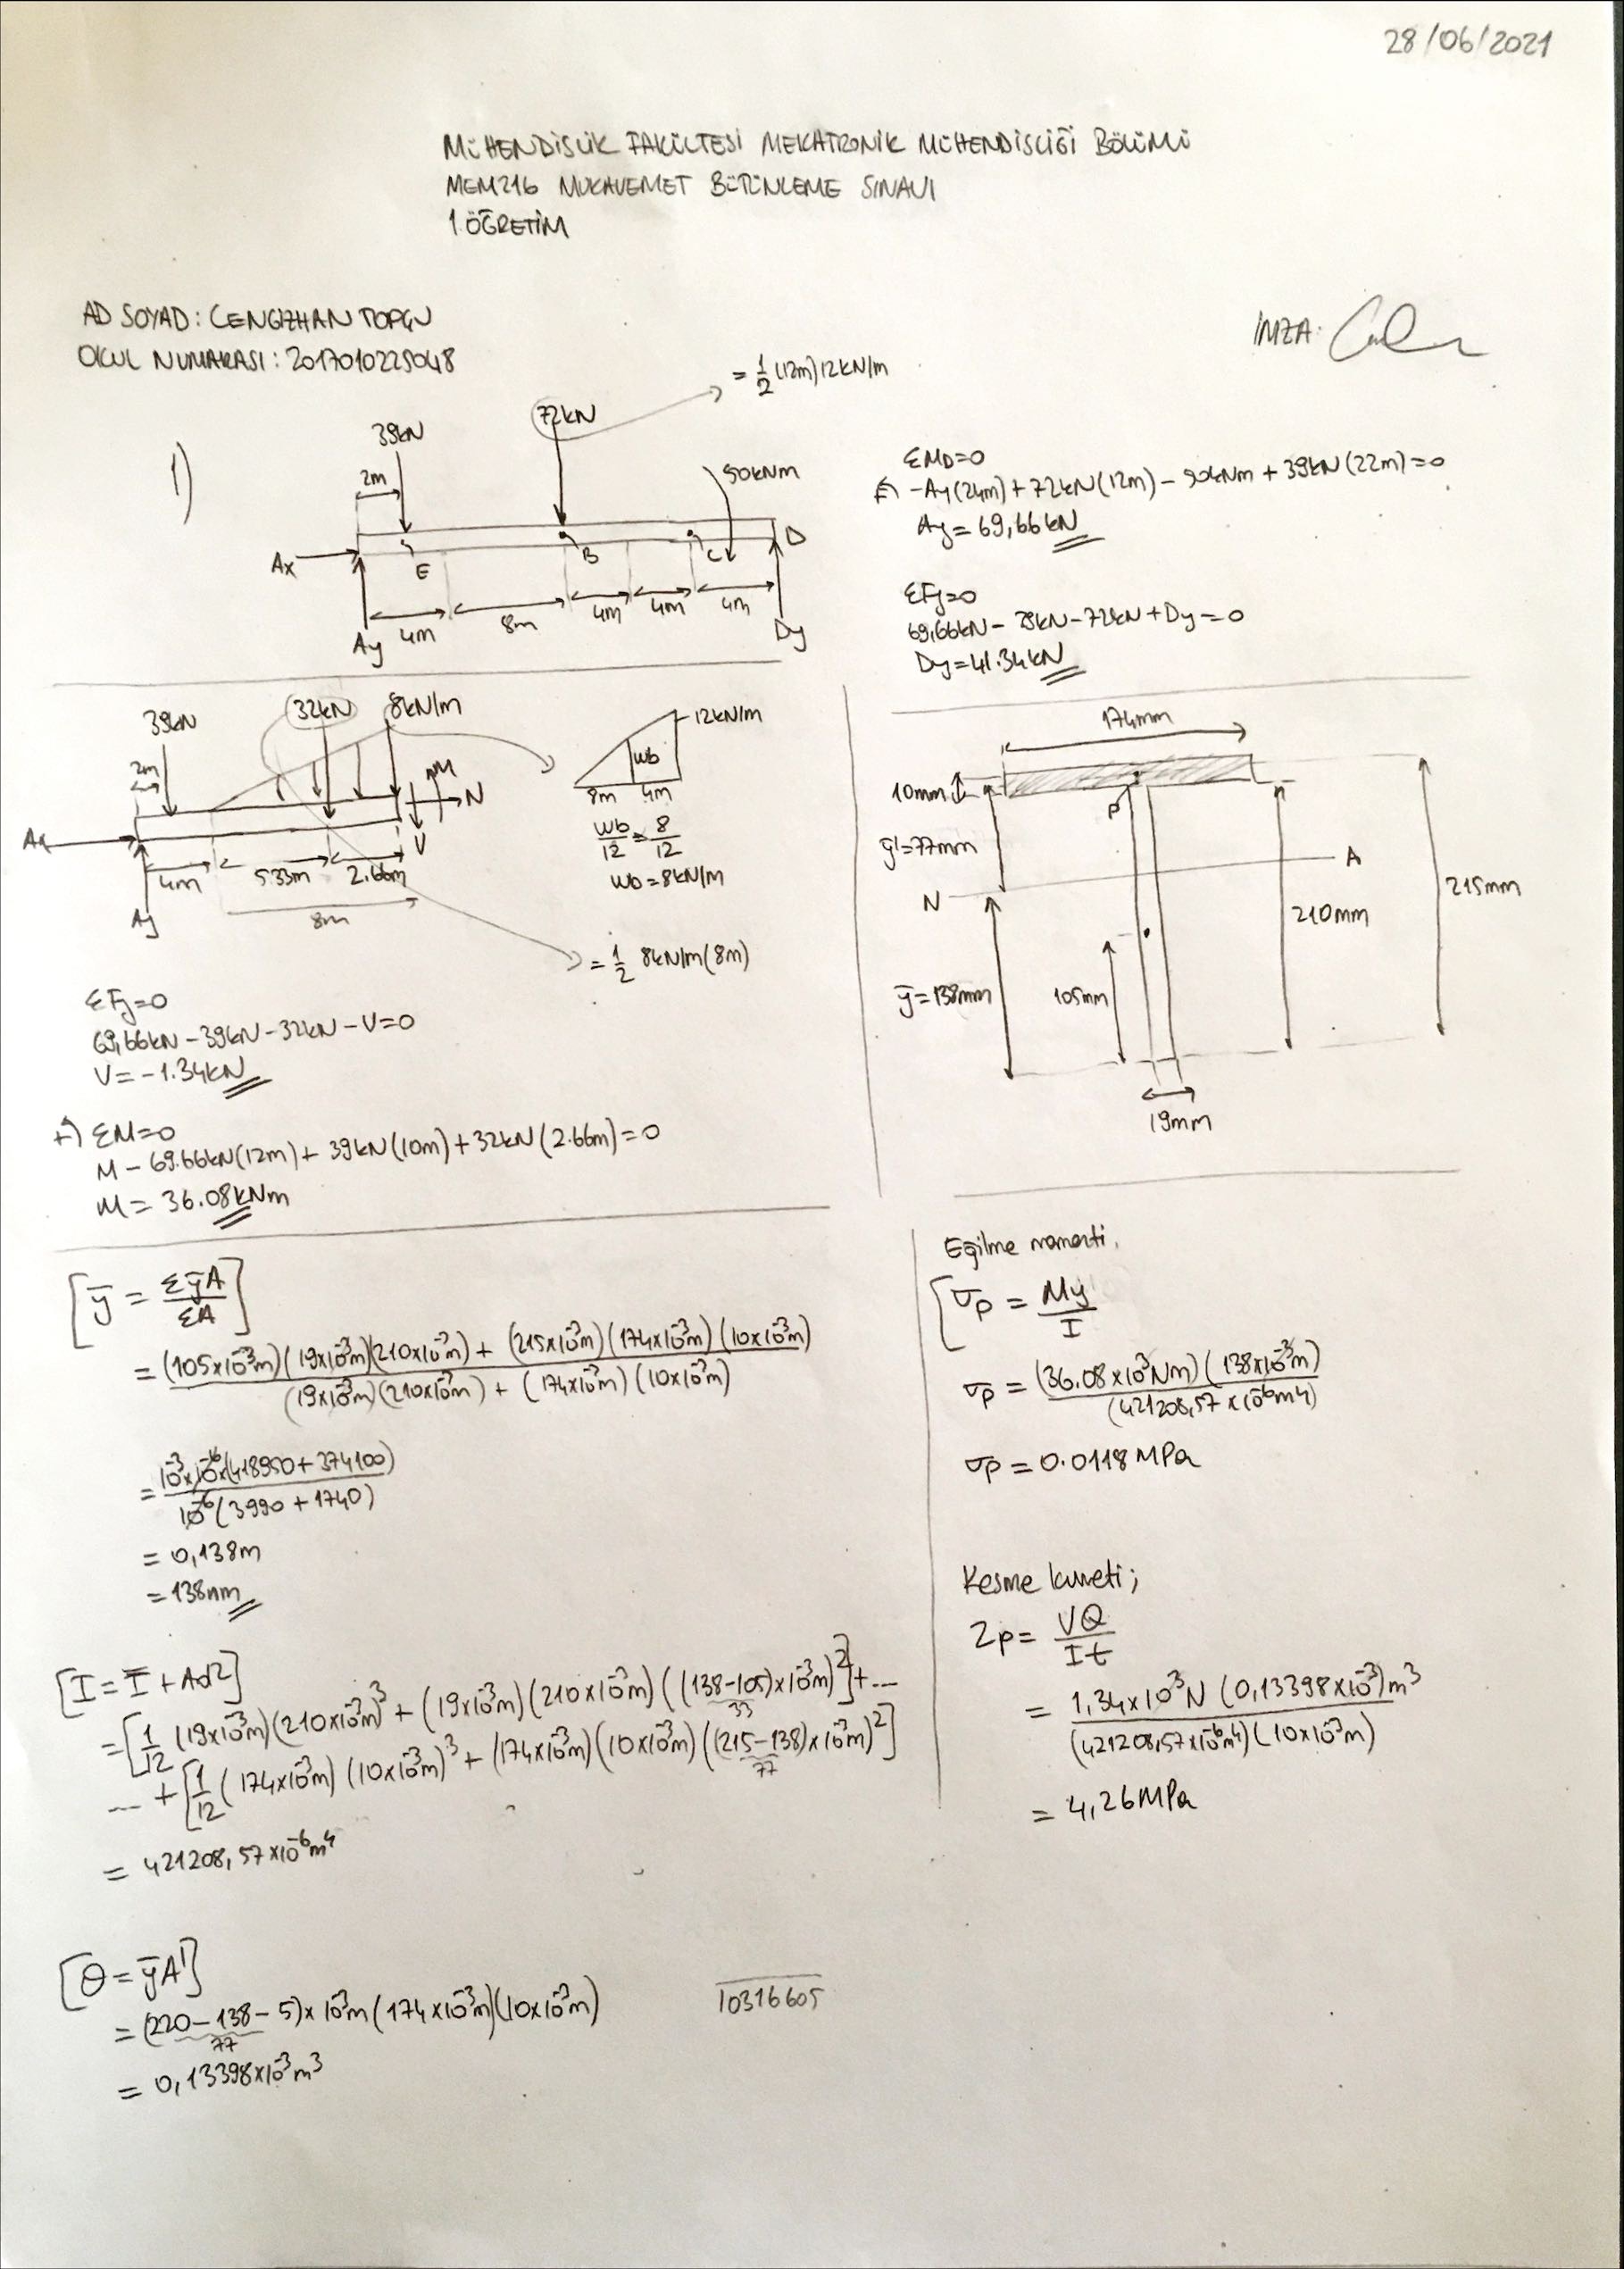 28/06/2021
MÜHENDİSLİK FAKÜLTESİ MEKATRONİK MÜHENDİSLİĞİ BÖLÜMÜ
MEM216 MUKAVEMET BÜTÜNLEME SINAVI
1.ÖĞRETİM
AD SOYAD: CENGİZHAN TOPÇU
OKUL NUMARASI: 2017010225048
İMZA:
1)
= 1/2 (12m) 12kN/m
72kN
39kN
2m
90kNm
Ax
E
B
C
D
Ay
4m
8m
4m
4m
4m
Dy
ΣMD=0
+) -Ay(24m)+72kN(12m) - 90kNm + 39kN(22m)=0
Ay= 69,66kN
ΣFy=0
69,66kN - 39kN - 72kN + Dy = 0
Dy=41.34kN
39kN
32kN
8kN/m
2m
M
N
V
Ax
4m
5.33m
2.66m
Ay
8m
12kN/m
wb
8m 4m
wb/12 = 8/12
wb=8kN/m
= 1/2 8kN/m(8m)
ΣFy=0
69,66kN - 39kN - 32kN - V=0
V= -1.34kN
+) ΣM=0
M - 69.66kN(12m) + 39kN(10m) + 32kN(2.66m)=0
M= 36.08kNm
174mm
10mm
P
y'=77mm
A
N
215mm
210mm
ȳ=138mm
105mm
19mm
[ȳ = ΣȳA/ΣA]
= (105x10⁻³m)(19x10⁻³m)(210x10⁻³m) + (215x10⁻³m)(174x10⁻³m)(10x10⁻³m)
(19x10⁻³m)(210x10⁻³m) + (174x10⁻³m)(10x10⁻³m)
= 10⁻³x10⁻⁶x(418950+374100)
10⁻⁶(3990+1740)
= 0,138m
= 138mm
[I = Ī + Ad²]
= [1/12 (19x10⁻³m)(210x10⁻³m)³ + (19x10⁻³m)(210x10⁻³m)((138-105)x10⁻³m)²]+...
33
... + [1/12 (174x10⁻³m)(10x10⁻³m)³ + (174x10⁻³m)(10x10⁻³m)((215-138)x10⁻³m)²]
77
= 421208,57x10⁻⁶m⁴
[θ = ȳA']
= (220-138-5)x10⁻³m(174x10⁻³m)(10x10⁻³m)
77
= 0,13398x10⁻³m³
10316605
Eğilme momenti,
[σp = My/I
σp = (36.08x10³Nm)(138x10⁻³m)
(421208,57x10⁻⁶m⁴)
σp = 0.0118MPa
Kesme kuvveti;
Zp = VQ/It
= 1,34x10³N (0,13398x10⁻³)m³
(421208,57x10⁻⁶m⁴)(10x10⁻³m)
= 4,26MPa